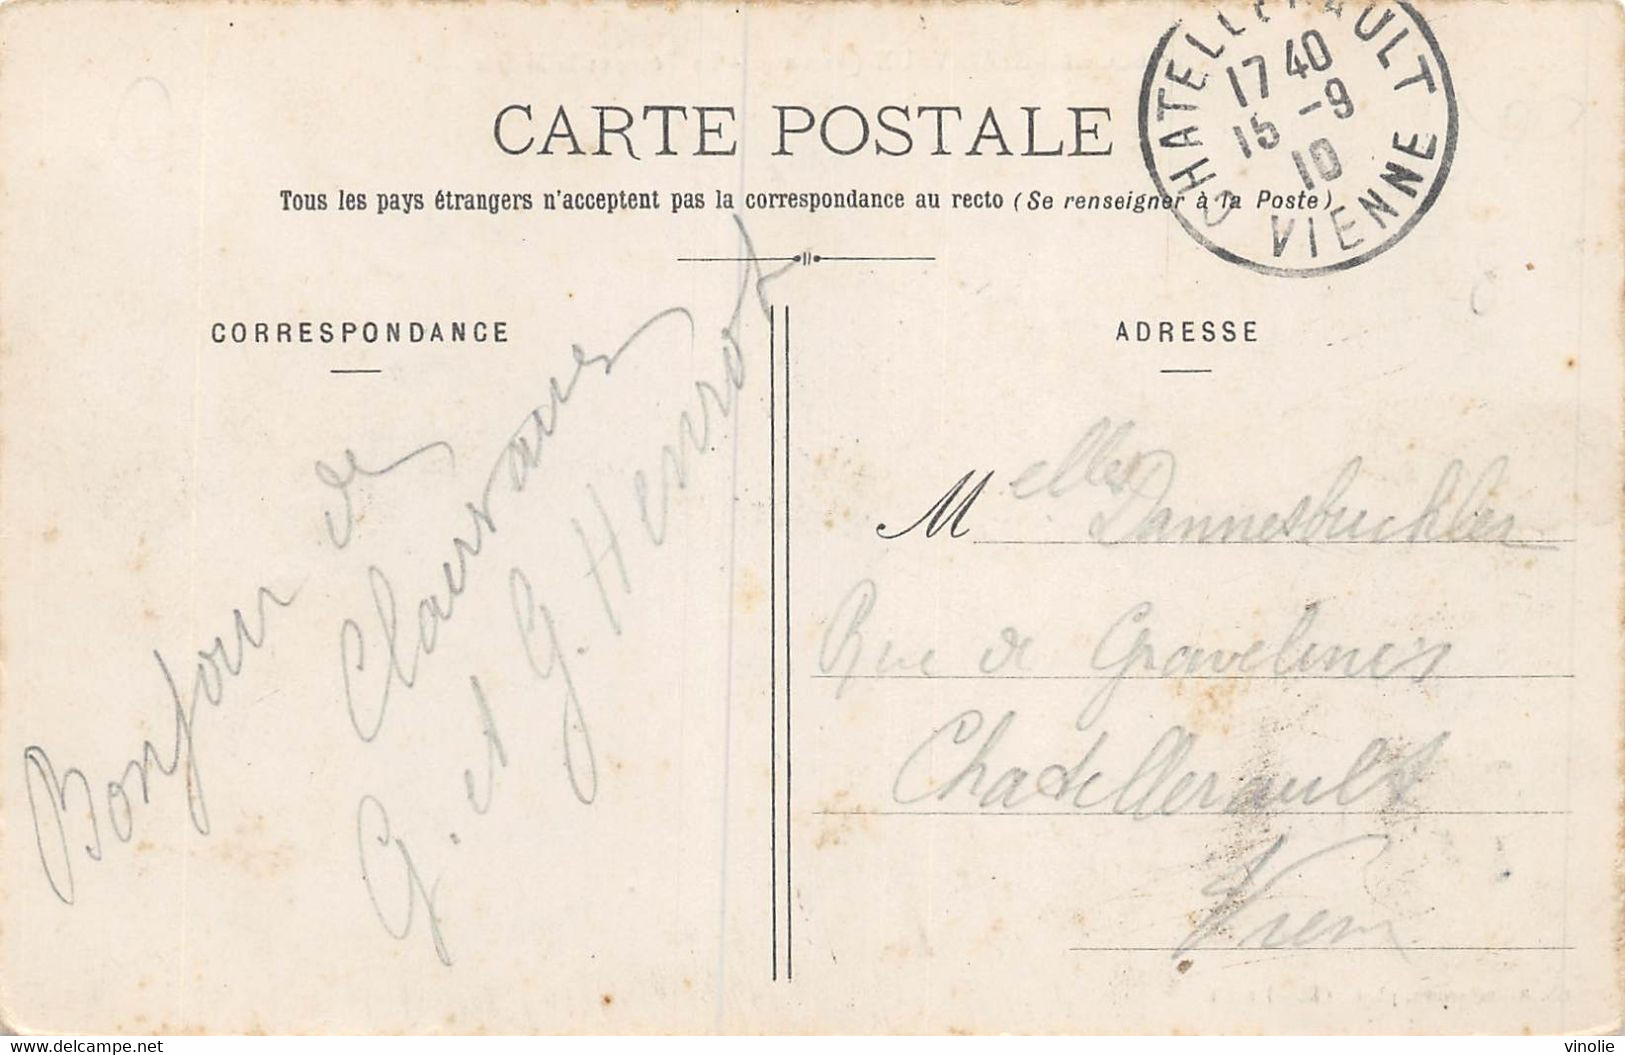 CARTE POSTALE
Tous les pays étrangers n'acceptent pas la correspondance au recto (Se renseigner à la Poste)
CHATELLERAULT
17 40
15 -9
10
VIENNE
CORRESPONDANCE
Bonjour de
Clairvaux
G. et G. Henrot
ADRESSE
Melles Dannesbuckler
Rue de Gravelines
Chatellerault
delcampe.net
vinolie